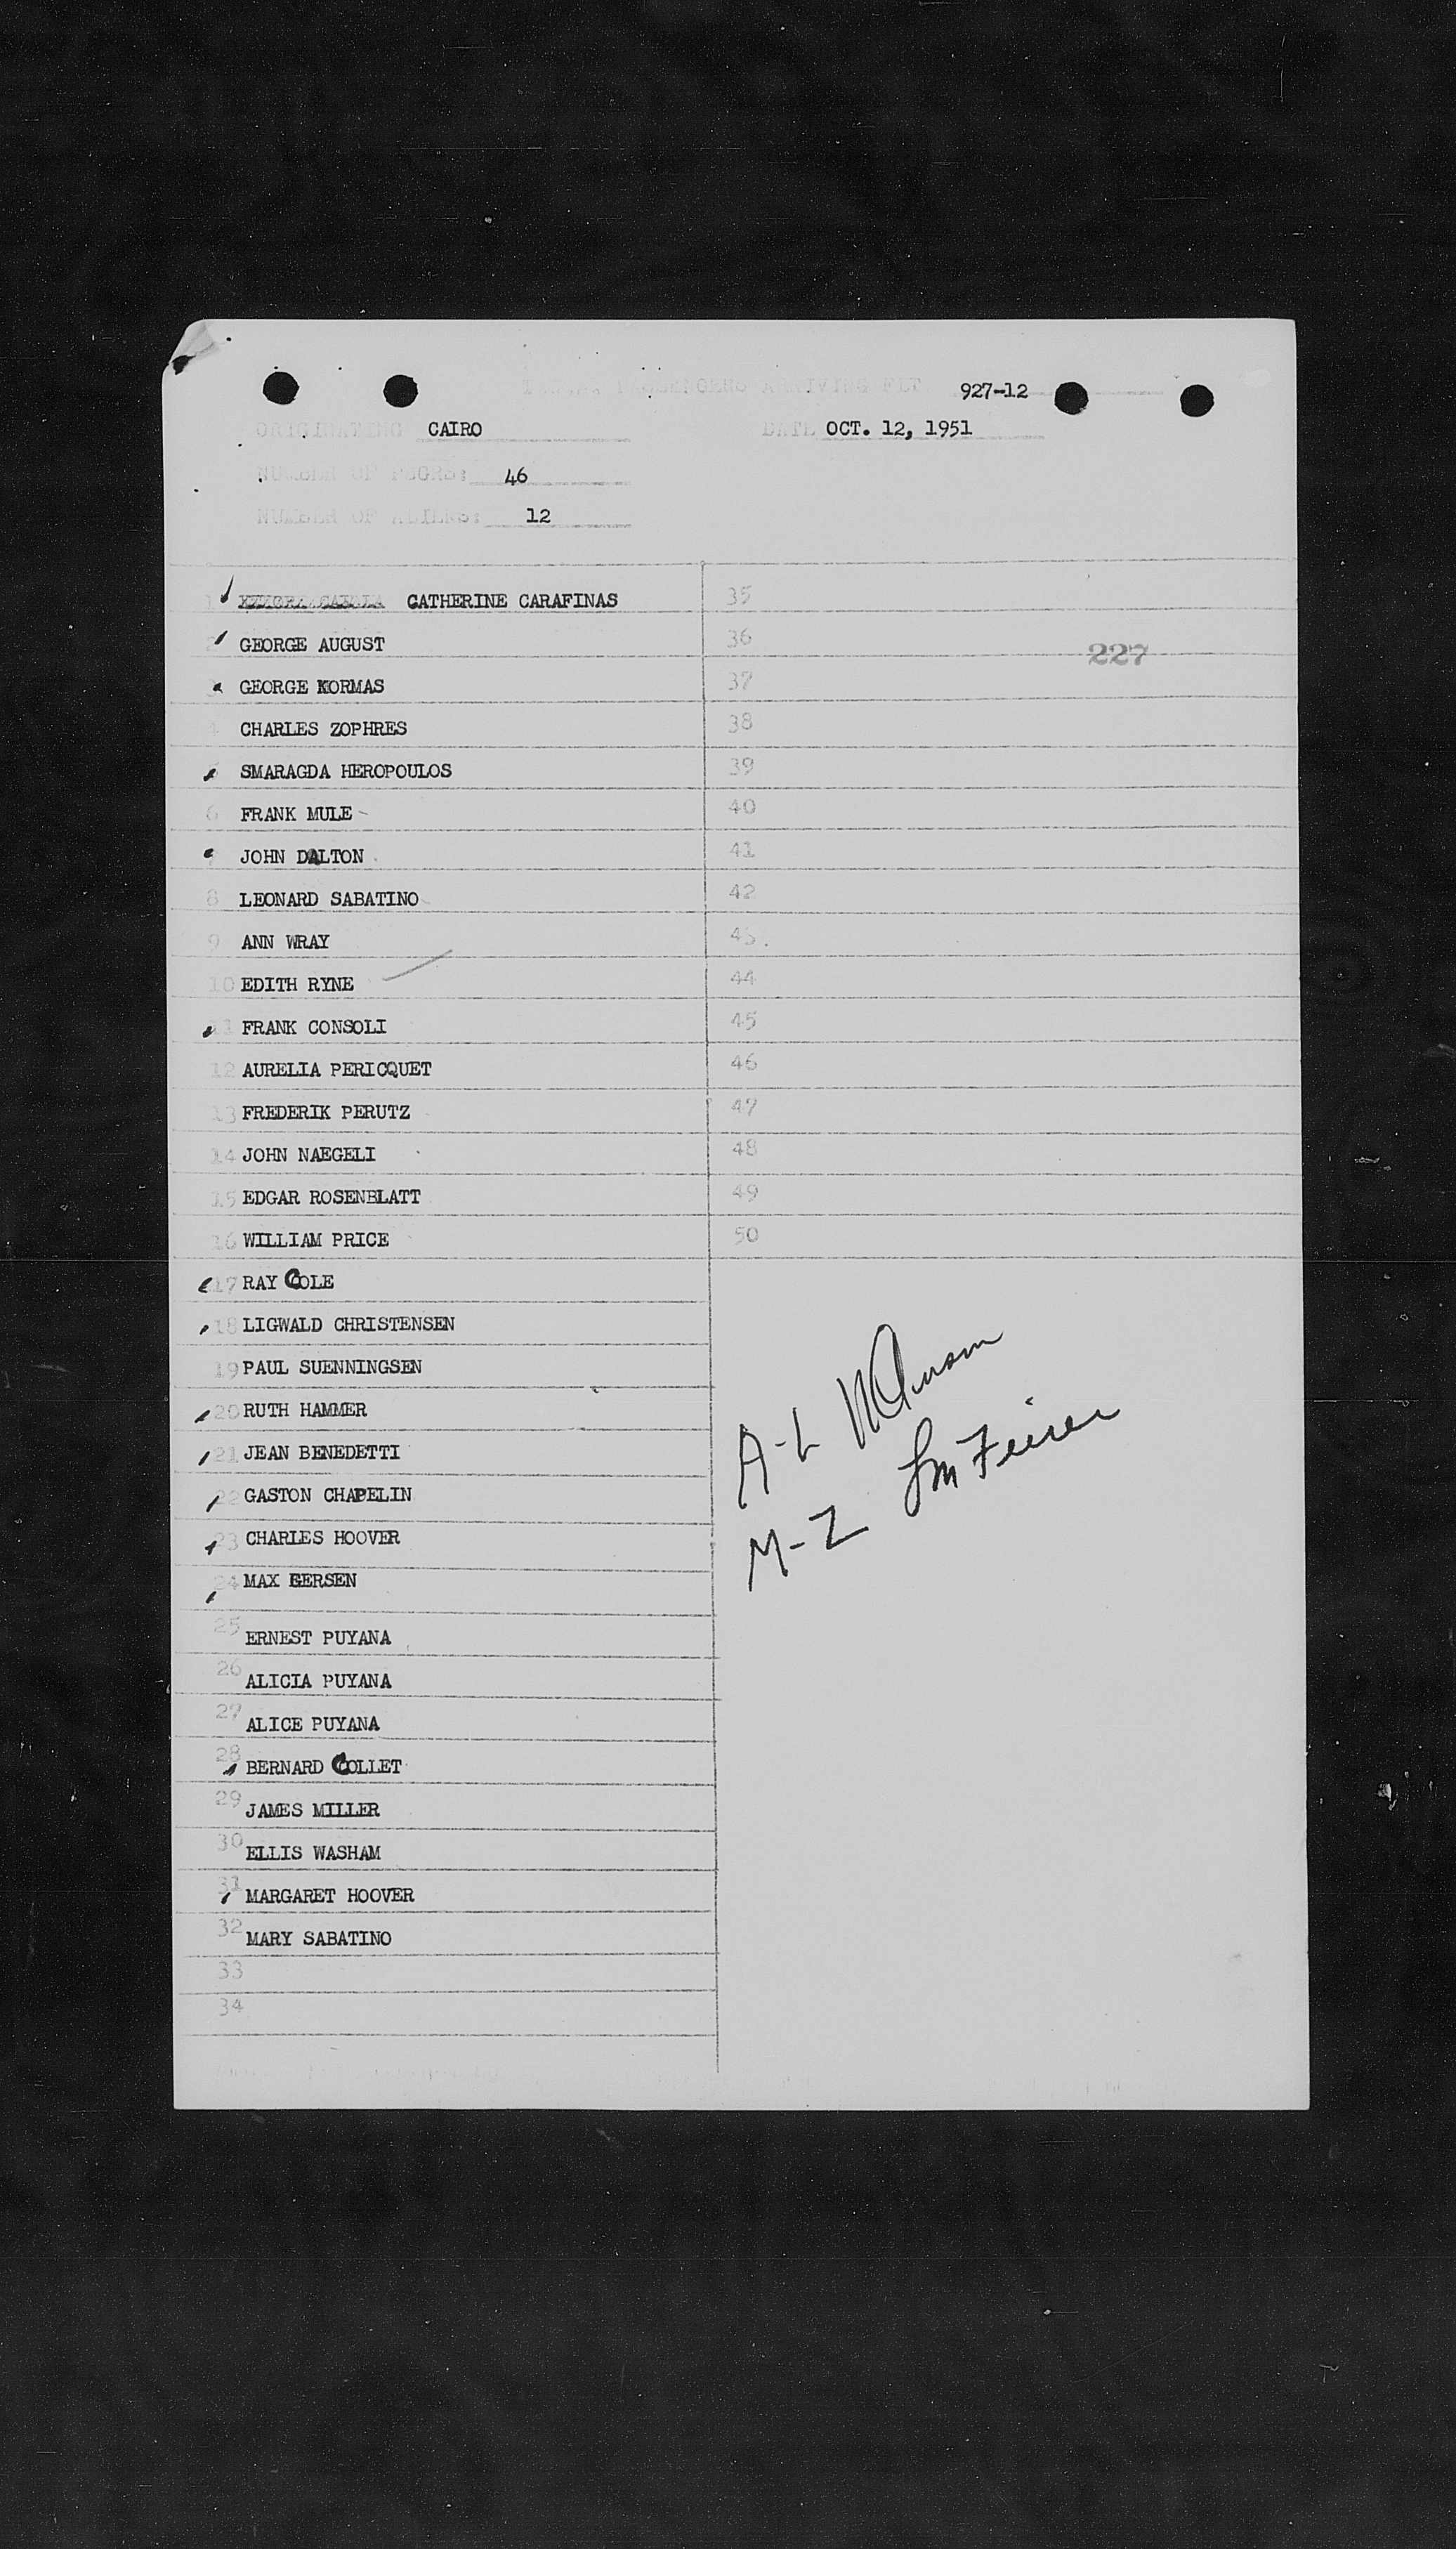 PASSENGERS ARRIVING FLT 927-12
ORIGINATING CAIRO DATE OCT. 12, 1951
NUMBER OF PSGRS: 46
NUMBER OF ALIENS: 12
1 CATHERINE CARAFINAS
2 GEORGE AUGUST
3 GEORGE KORMAS
4 CHARLES ZOPHRES
5 SMARAGDA HEROPOULOS
6 FRANK MULE
7 JOHN DALTON
8 LEONARD SABATINO
9 ANN WRAY
10 EDITH RYNE
11 FRANK CONSOLI
12 AURELIA PERICQUET
13 FREDERIK PERUTZ
14 JOHN NAEGELI
15 EDGAR ROSENBLATT
16 WILLIAM PRICE
17 RAY COLE
18 LIGWALD CHRISTENSEN
19 PAUL SUENNINGSEN
20 RUTH HAMMER
21 JEAN BENEDETTI
22 GASTON CHAPELIN
23 CHARLES HOOVER
24 MAX GERSEN
25 ERNEST PUYANA
26 ALICIA PUYANA
27 ALICE PUYANA
28 BERNARD COLLET
29 JAMES MILLER
30 ELLIS WASHAM
31 MARGARET HOOVER
32 MARY SABATINO
33
34
35
36
227
37
38
39
40
41
42
43
44
45
46
47
48
49
50
A-L
M-Z